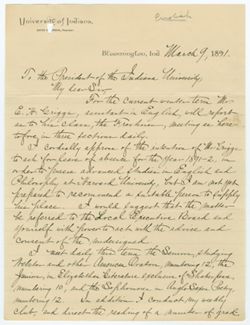 English
University of Indiana,
Bloomington, Ind March 9, 1891.
To the President of the Indiana University
My dear Sir
For the current winter term Mr.
E. H. Griggs, assistant in English, will report
as to his class, the Freshmen, meeting as here-
tofore, in three sections daily.
I cordially approve of the intention of Mr. Griggs
to ask for leave of absence for the year 1891-2, in
order to pursue advanced studies in English and
Philosophy at Harvard University, but I am not yet
prepared to recommend a suitable person to supply
his place. I would suggest that the matter
be referred to the Local Executive Board and
yourself with power to act with the advice and
consent of the undersigned.
I meet daily this term the Seniors, studying
Webster and other American Orators, numbering 12, the
Juniors, in Elizabethan Literature exclusive of Shakespeare,
numbering 10, and the Sophomores in Anglo Saxon Poetry,
numbering 12. In addition I conduct my weekly
club, and direct the reading of a number of grad-